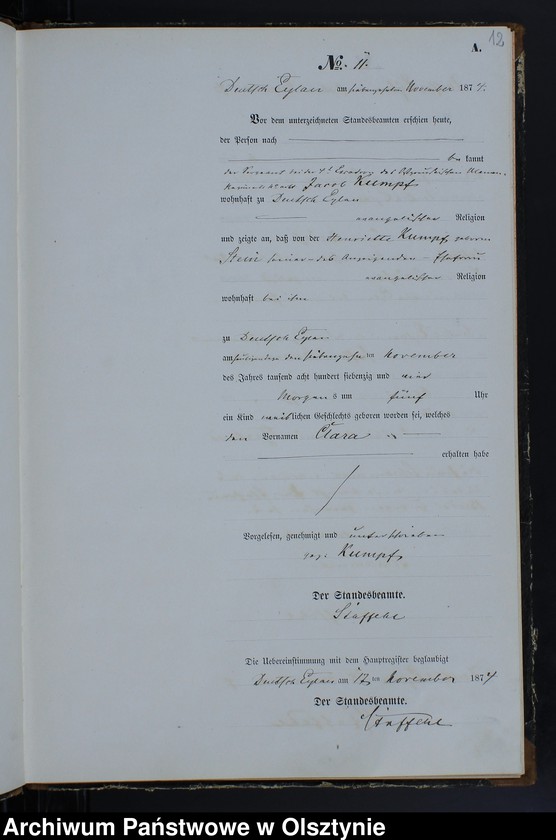 12
A.
No. 11.
Deutsch Eylau am siebenzehnten November 1874.
Vor dem unterzeichneten Standesbeamten erschien heute,
der Person nach
be kannt
der
Jacob Kumpf
wohnhaft zu Deutsch Eylau
evangelischer Religion
und zeigte an, daß von der Henriette Kumpf, geborne
Stein seiner des Anzeigenden Ehefrau
evangelischer Religion
wohnhaft bei ihm
zu Deutsch Eylau
am siebenzehn ten November
des Jahres tausend acht hundert siebenzig und vier
Morgen s um fünf Uhr
ein Kind weiblichen Geschlechts geboren worden sei, welches
den Vornamen Clara
erhalten habe
Vorgelesen, genehmigt und unterschrieben
gez. Kumpf,
Der Standesbeamte.
Staffehl
Die Uebereinstimmung mit dem Hauptregister beglaubigt
Deutsch Eylau am 17 ten November 1874
Der Standesbeamte.
Staffehl
Archiwum Państwowe w Olsztynie